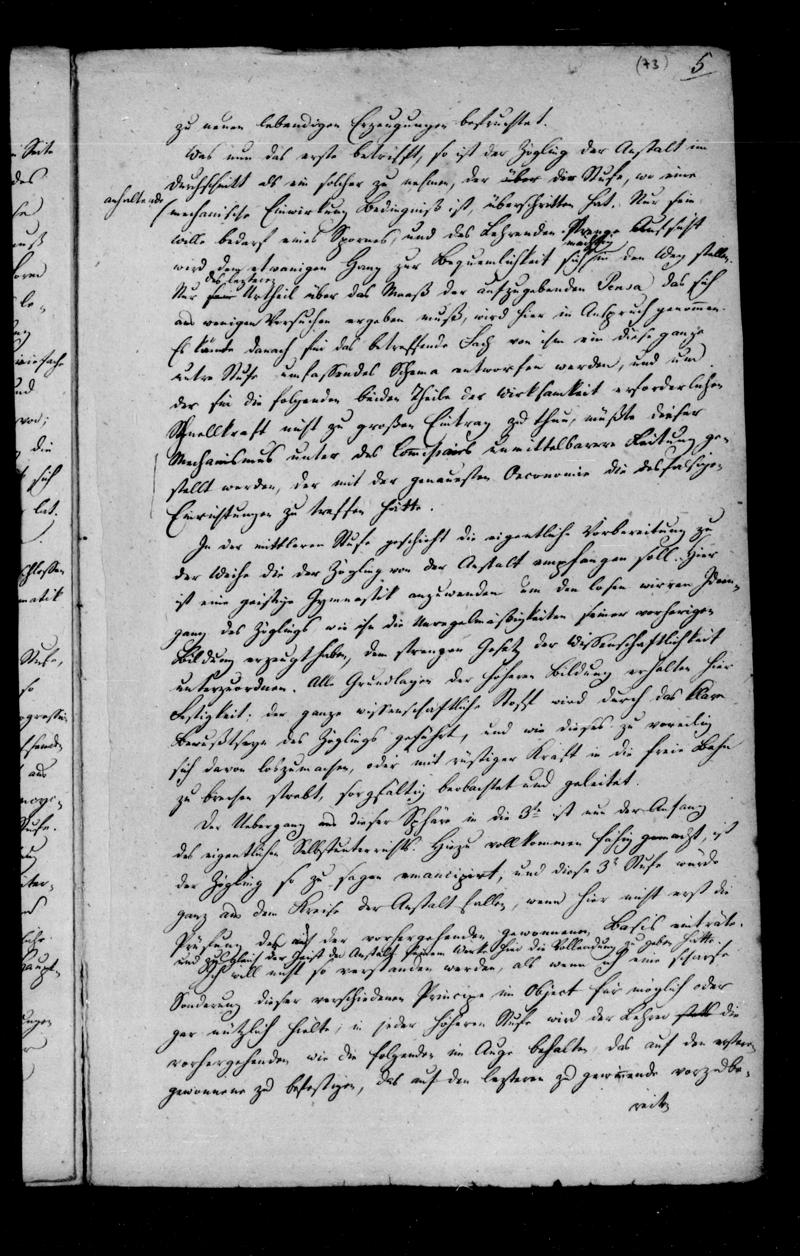 (73) 5
zu neuen lebendigen Erzeugungen befruchtet.
Was nun das erste betrifft, so ist der Zögling der Anstalt im
Durchschnitt als ein solcher zu nehmen, der über die Stufe, wo eine
anhaltende
mechanische Einwirkung Bedingniß ist, überschritten hat. Nur sein
Wille bedarf eines Spornes, und des Lehrenden strenge Aufsicht
wird dem etwanigen Hang zur Bequemlichkeit sich in den Weg stellen.
des letztern
Nur sein Urtheil über das Maaß der aufzugebenden Pensa das sich
aus wenigen Versuchen ergeben muß, wird hier in Anspruch genommen.
Es könnte danach für das betreffende Fach von ihm ein diese ganze
untre Stufe umfassendes Schema entworfen werden, und um
der für die folgenden beiden Theile der Wirksamkeit erforderlichen
Schnellkraft nicht zu großen Eintrag zu thun, müßte dieser
Mechanismus unter des Commissairs unmittelbarere Leitung ge-
stellt werden, der mit der genauesten Oeconomie die desfalsigen
Einrichtungen zu treffen hätte.
In der mittleren Stufe geschieht die eigentliche Vorbereitung zu
der Weihe die der Zögling von der Anstalt empfangen soll. Hier
ist eine geistige Gymnastik anzuwenden um den losen wirren Ideen-
gang des Zöglings wie ihn die Unregelmäßigkeiten seiner vorherigen
Bildung erzeugt haben, dem strengen Gesetz der Wissenschaftlichkeit
unterzuordnen. Alle Grundlagen der höheren Bildung erhalten hier
Festigkeit; der ganze wissenschaftliche Stoff wird durch das klare
Bewußtseyn des Zöglings geführt, und wie dieses zu voreilig
sich davon loszumachen, oder mit rüstiger Kraft in die freie Bahn
zu brechen strebt, sorgfältig beobachtet und geleitet.
Der Uebergang aus dieser Sphäre in die 3te ist nun der Anfang
des eigentlichen Selbstunterrichts. Hiezu vollkommen fähig gemacht, ist
der Zögling so zu sagen emancipirt, und diese 3e Stufe würde
ganz aus dem Kreise der Anstalt fallen, wenn hier nicht erst die
Prüfung der auf der vorhergehenden gewonnenen Basis einträte.
und zugleich der Geist der Anstalt seinem Werke hier die Vollendung zu geben hätte.
Ich will nicht so verstanden werden, als wenn ich eine scharfe
Sonderung dieser verschiedenen Principe im Object für möglich oder
gar nützlich hielte; in jeder höheren Stufe wird der Lehrer die
vorhergehenden wie die folgenden im Auge behalten, das auf den ersteren
gewonnene zu befestigen, das auf den letzteren zu gewinnende vorzube-
reiten